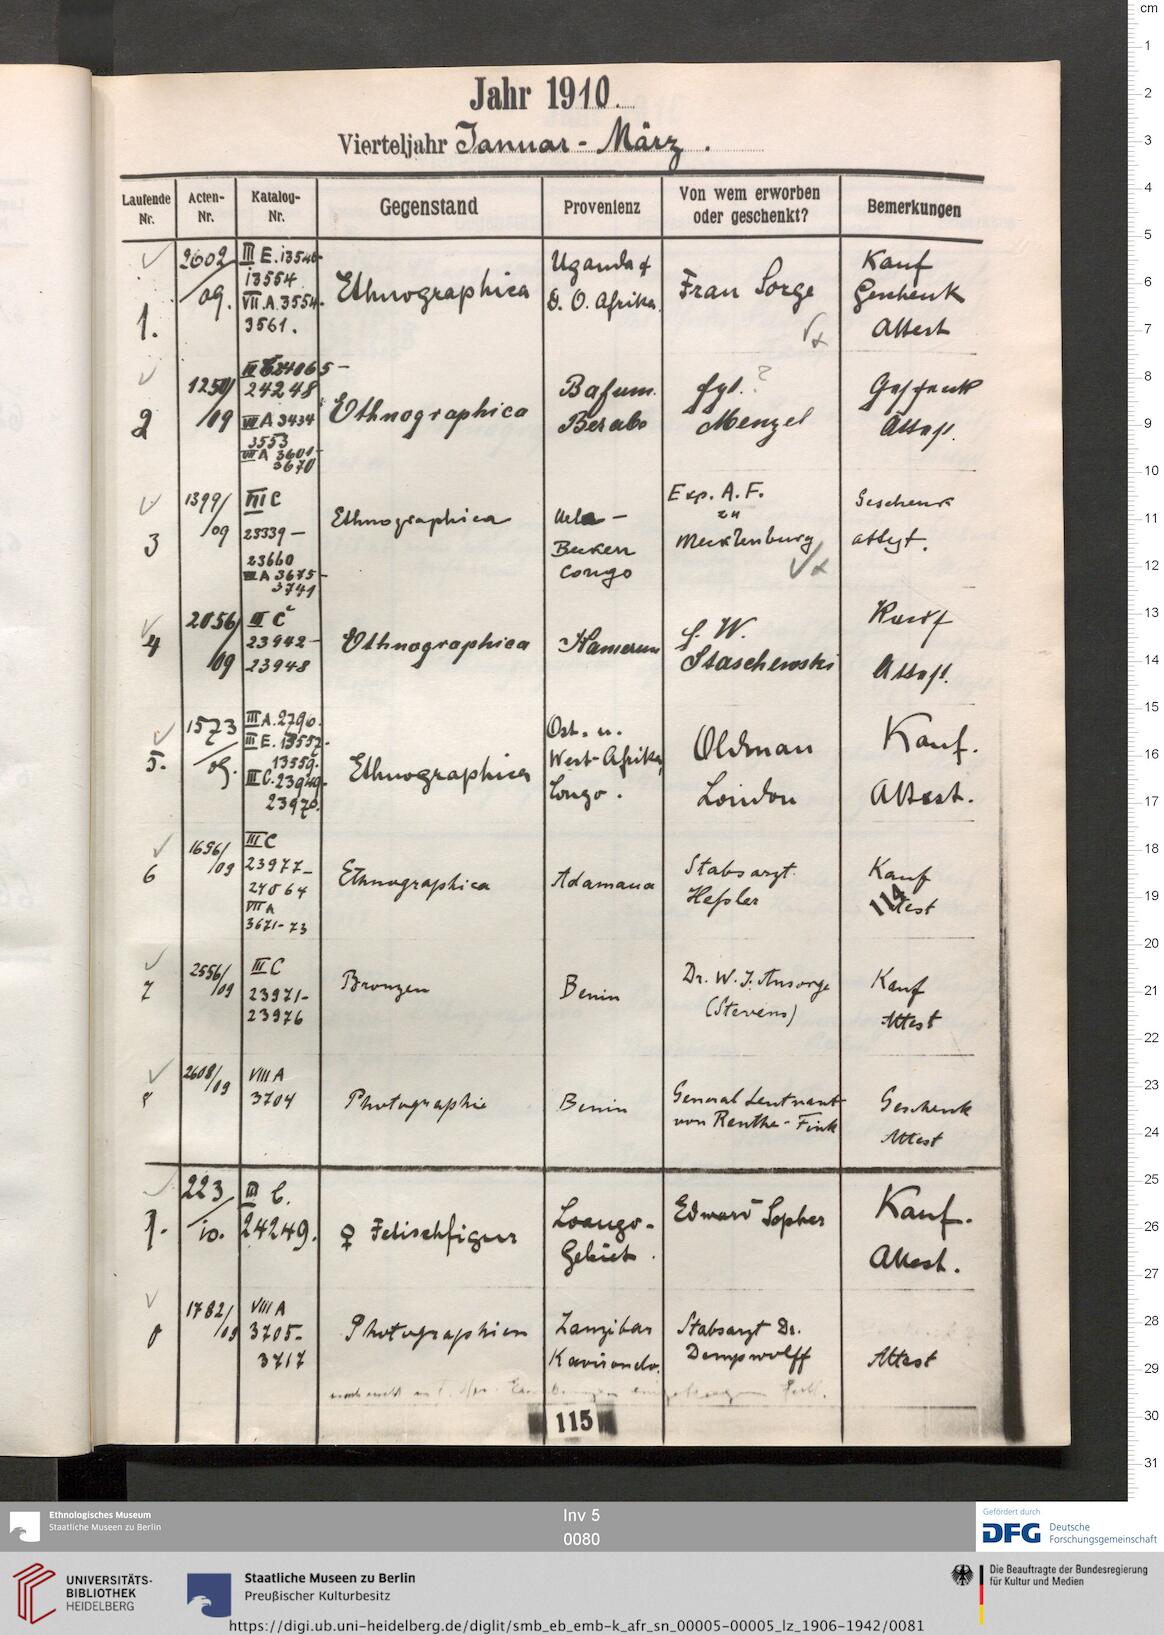 Jahr 1910.
Vierteljahr Januar - März.
Laufende Nr.
Acten-Nr.
Katalog-Nr.
Gegenstand
Provenienz
Von wem erworben oder geschenkt?
Bemerkungen
1.
2602/09.
III E. 13546-
13554
VII.A.3554-
3561.
Ethnographica
Uganda
D. O. Afrika.
Frau Sorge
Kauf
Geschenk
Attest
2
1250/09
24248
VIII A 3434
3553
VIII A 3601-
3670
Ethnographica
Bafum.
Menzel
Geschenk
Attest.
3
1399/09
III C
23339 -
23660
VIII A 3675-
3741
Ethnographica
Uele -
Becken
Congo
Exp. A. F.
zu
Mecklenburg
Geschenk
Attest.
4
2056/09
III C
23942-
23948
Ethnographica
Kamerun
Staschewski
Kauf
Attest.
5.
1573/09.
III A. 2790.
III E. 13557-
13559.
III C. 23949-
23970.
Ethnographica
Ost- u.
West-Afrika,
Congo.
Oldman
London
Kauf.
Attest.
6
1696/09
III C
23977-
24064
VIII A
3671-73
Ethnographica
Adamaua
Stabsarzt
Heßler
Kauf
Attest
114
7
2556/09
III C
23971-
23976
Bronzen
Benin
Dr. W. J. Ansorge
(Stevens)
Kauf
Attest
8
2608/09
VIII A
3704
Photographie
Benin
General Leutnant
von Renthe-Fink
Geschenk
Attest
1.
223/10.
III C.
24249.
♀ Fetischfigur
Loango-
Gebiet.
Edward Sopher
Kauf.
Attest.
1782/09
VIII A
3705-
3717
Photographien
Zanzibar
Kavirondo.
Stabsarzt Dr.
Dempwolff
Attest
115
cm
1
2
3
4
5
6
7
8
9
10
11
12
13
14
15
16
17
18
19
20
21
22
23
24
25
26
27
28
29
30
31
Ethnologisches Museum
Staatliche Museen zu Berlin
Inv 5
0080
Gefördert durch
DFG Deutsche
Forschungsgemeinschaft
UNIVERSITÄTS-
BIBLIOTHEK
HEIDELBERG
Staatliche Museen zu Berlin
Preußischer Kulturbesitz
Die Beauftragte der Bundesregierung
für Kultur und Medien
https://digi.ub.uni-heidelberg.de/diglit/smb_eb_emb-k_afr_sn_00005-00005_lz_1906-1942/0081